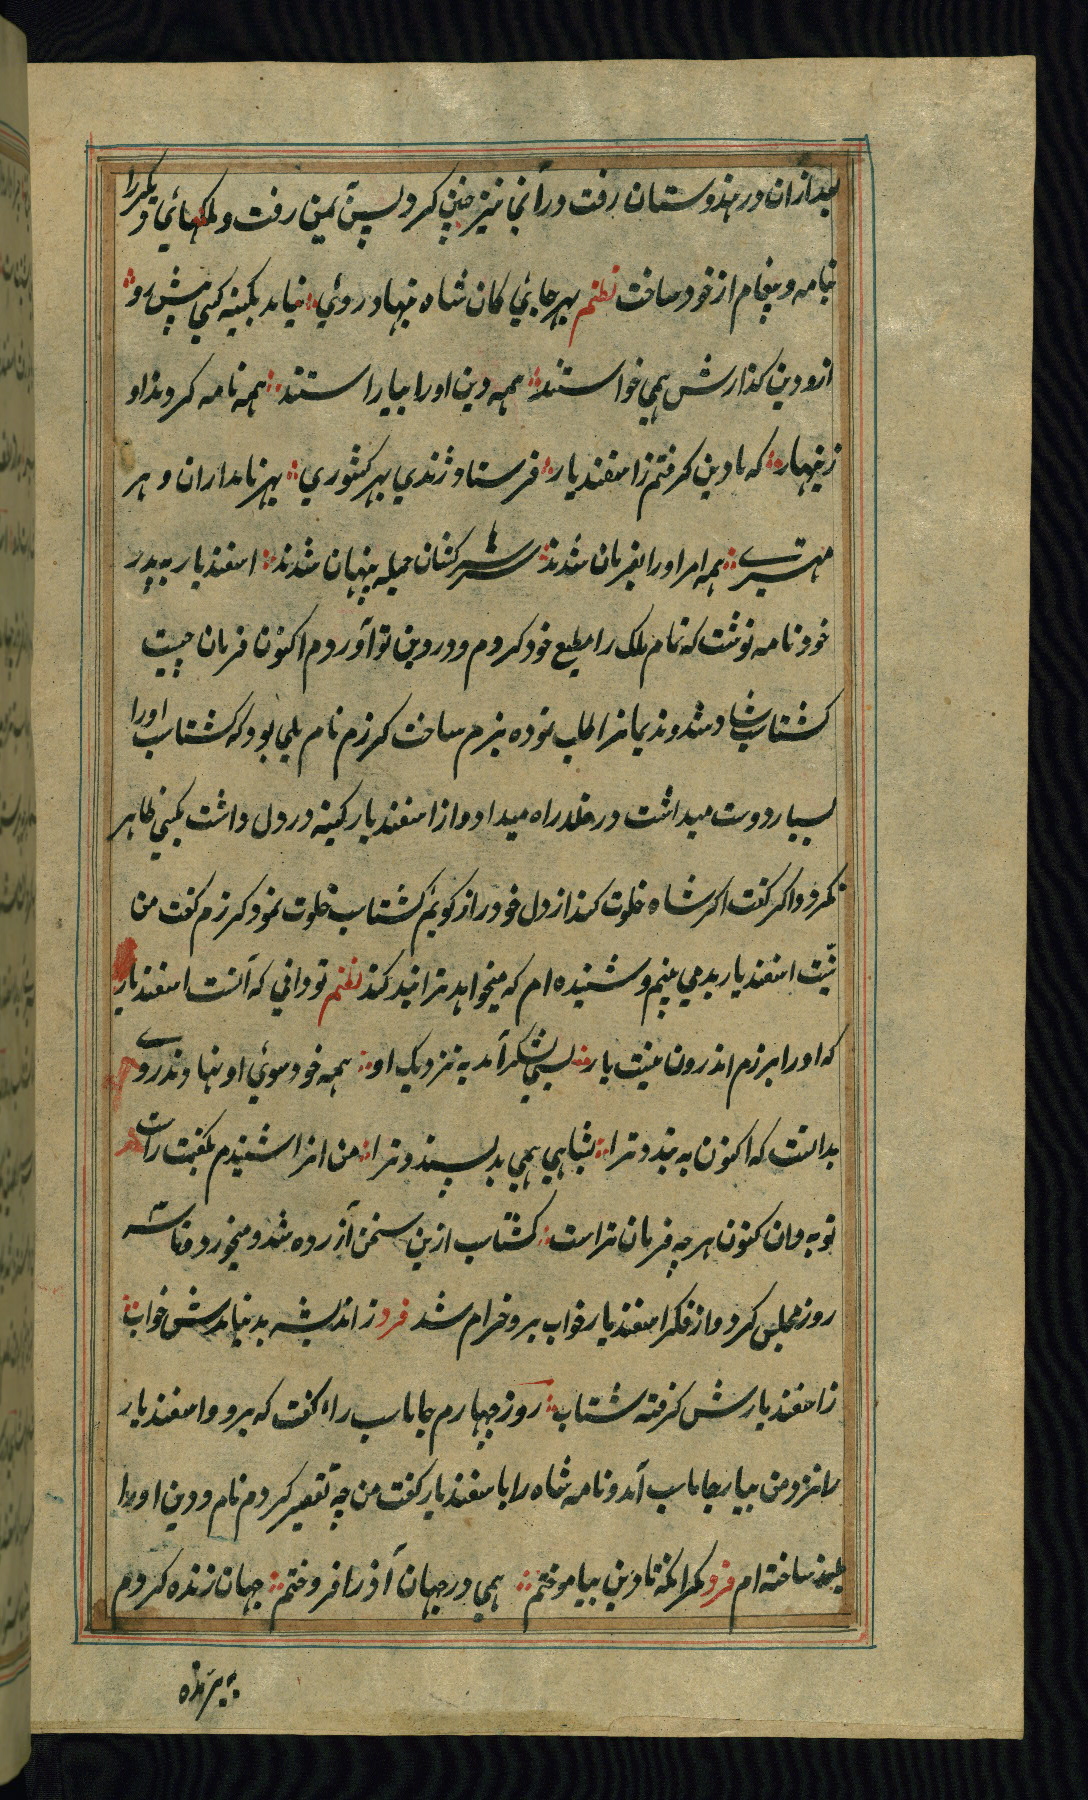 بعدازان در هندوستان رفت در آنجا نیز چنین کرد پس یمن رفت و ملکهائی دیگر را
بنامه و پیغام از خود ساخت نظم بهر جائی کان شاه بنهاد روئی نیامد بکینه کسی پیش او
ازو دین گذارش همی خواستند همه دین او را بیاراستند همه نامه کردند ازو
زینهار که ما دین گرفتم ز اسفندیار فرستاد ژندی بهر کشوری بهر نامداران و هر
مهتری همه امر او را بفرمان شدند سرکشان جمله پنهان شدند اسفندیار به پدر
خود نامه نوشت که تمام ملک را مطیع خود کردم و در دین تو آوردم اکنون فرمان چیست
گشتاسپ شاد شد و ندیمانرا طلب نموده بزم ساخت گرزم نام یلی بود که گشتاسپ او را
بسیار دوست میداشت در خلد راه میداد و از اسفندیار کینه در دل داشت بکسی ظاهر
نکرد و اکر گفت اگر شاه خلوت کند از دل خود راز گویم گشتاسپ خلوت نمود گرزم گفت من
نیت اسفندیار بد می بینم و شنیده ام که میخواهد ترا بند کند نظم تو دانی که آنست اسفندیار
که او را برزم اندرون نیست یار بسی لشکر آمد به نزدیک او همه خود سوئی او نهادند روی
بدانست که اکنون به بندد ترا بشاهی همی بد پسندد ترا من انرا شنیدم بگفتمت راست
تو به دان کنون هر چه فرمان تراست گشتاسپ ازین سخن آزرده شد و میخورد تا سه
روز مجلس کرد و از فکر اسفندیار خواب برو حرام شد فرد ز اندیشه بد نیامدش خواب
ز اسفندیارش گرفته شتاب روز چهارم جاماسپ را گفت که برو و اسفندیار
را نزد من بیار جاماسپ آمد و نامه شاه را باسفندیار گفت من چه تقصیر کردم نام و دین او را
بلند ساخته ام فرد مگر انکه تا دین بیاموختم همی در جهان آذر افروختم جهان زنده کردم
به برنده